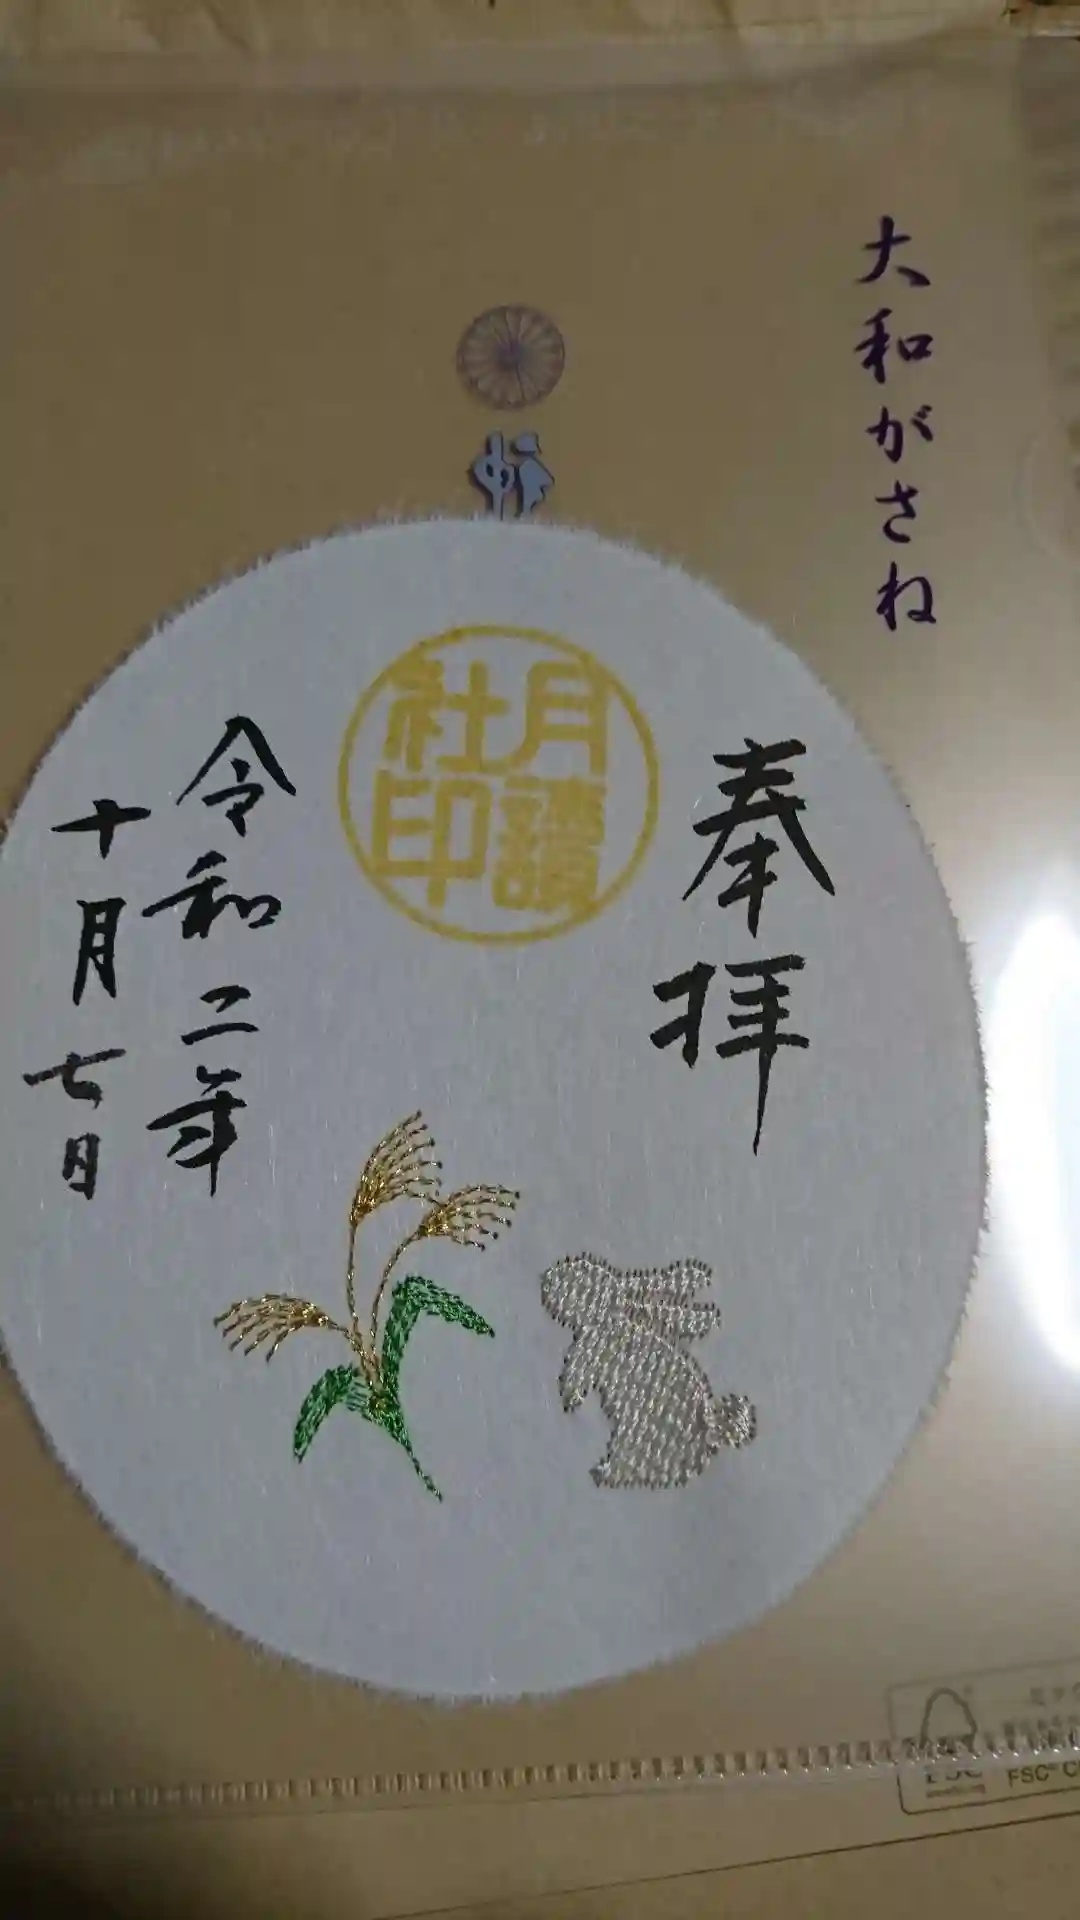 大和がさね
奉拝
月讀
社印
令和二年
十月七日
FSC
FSC® C